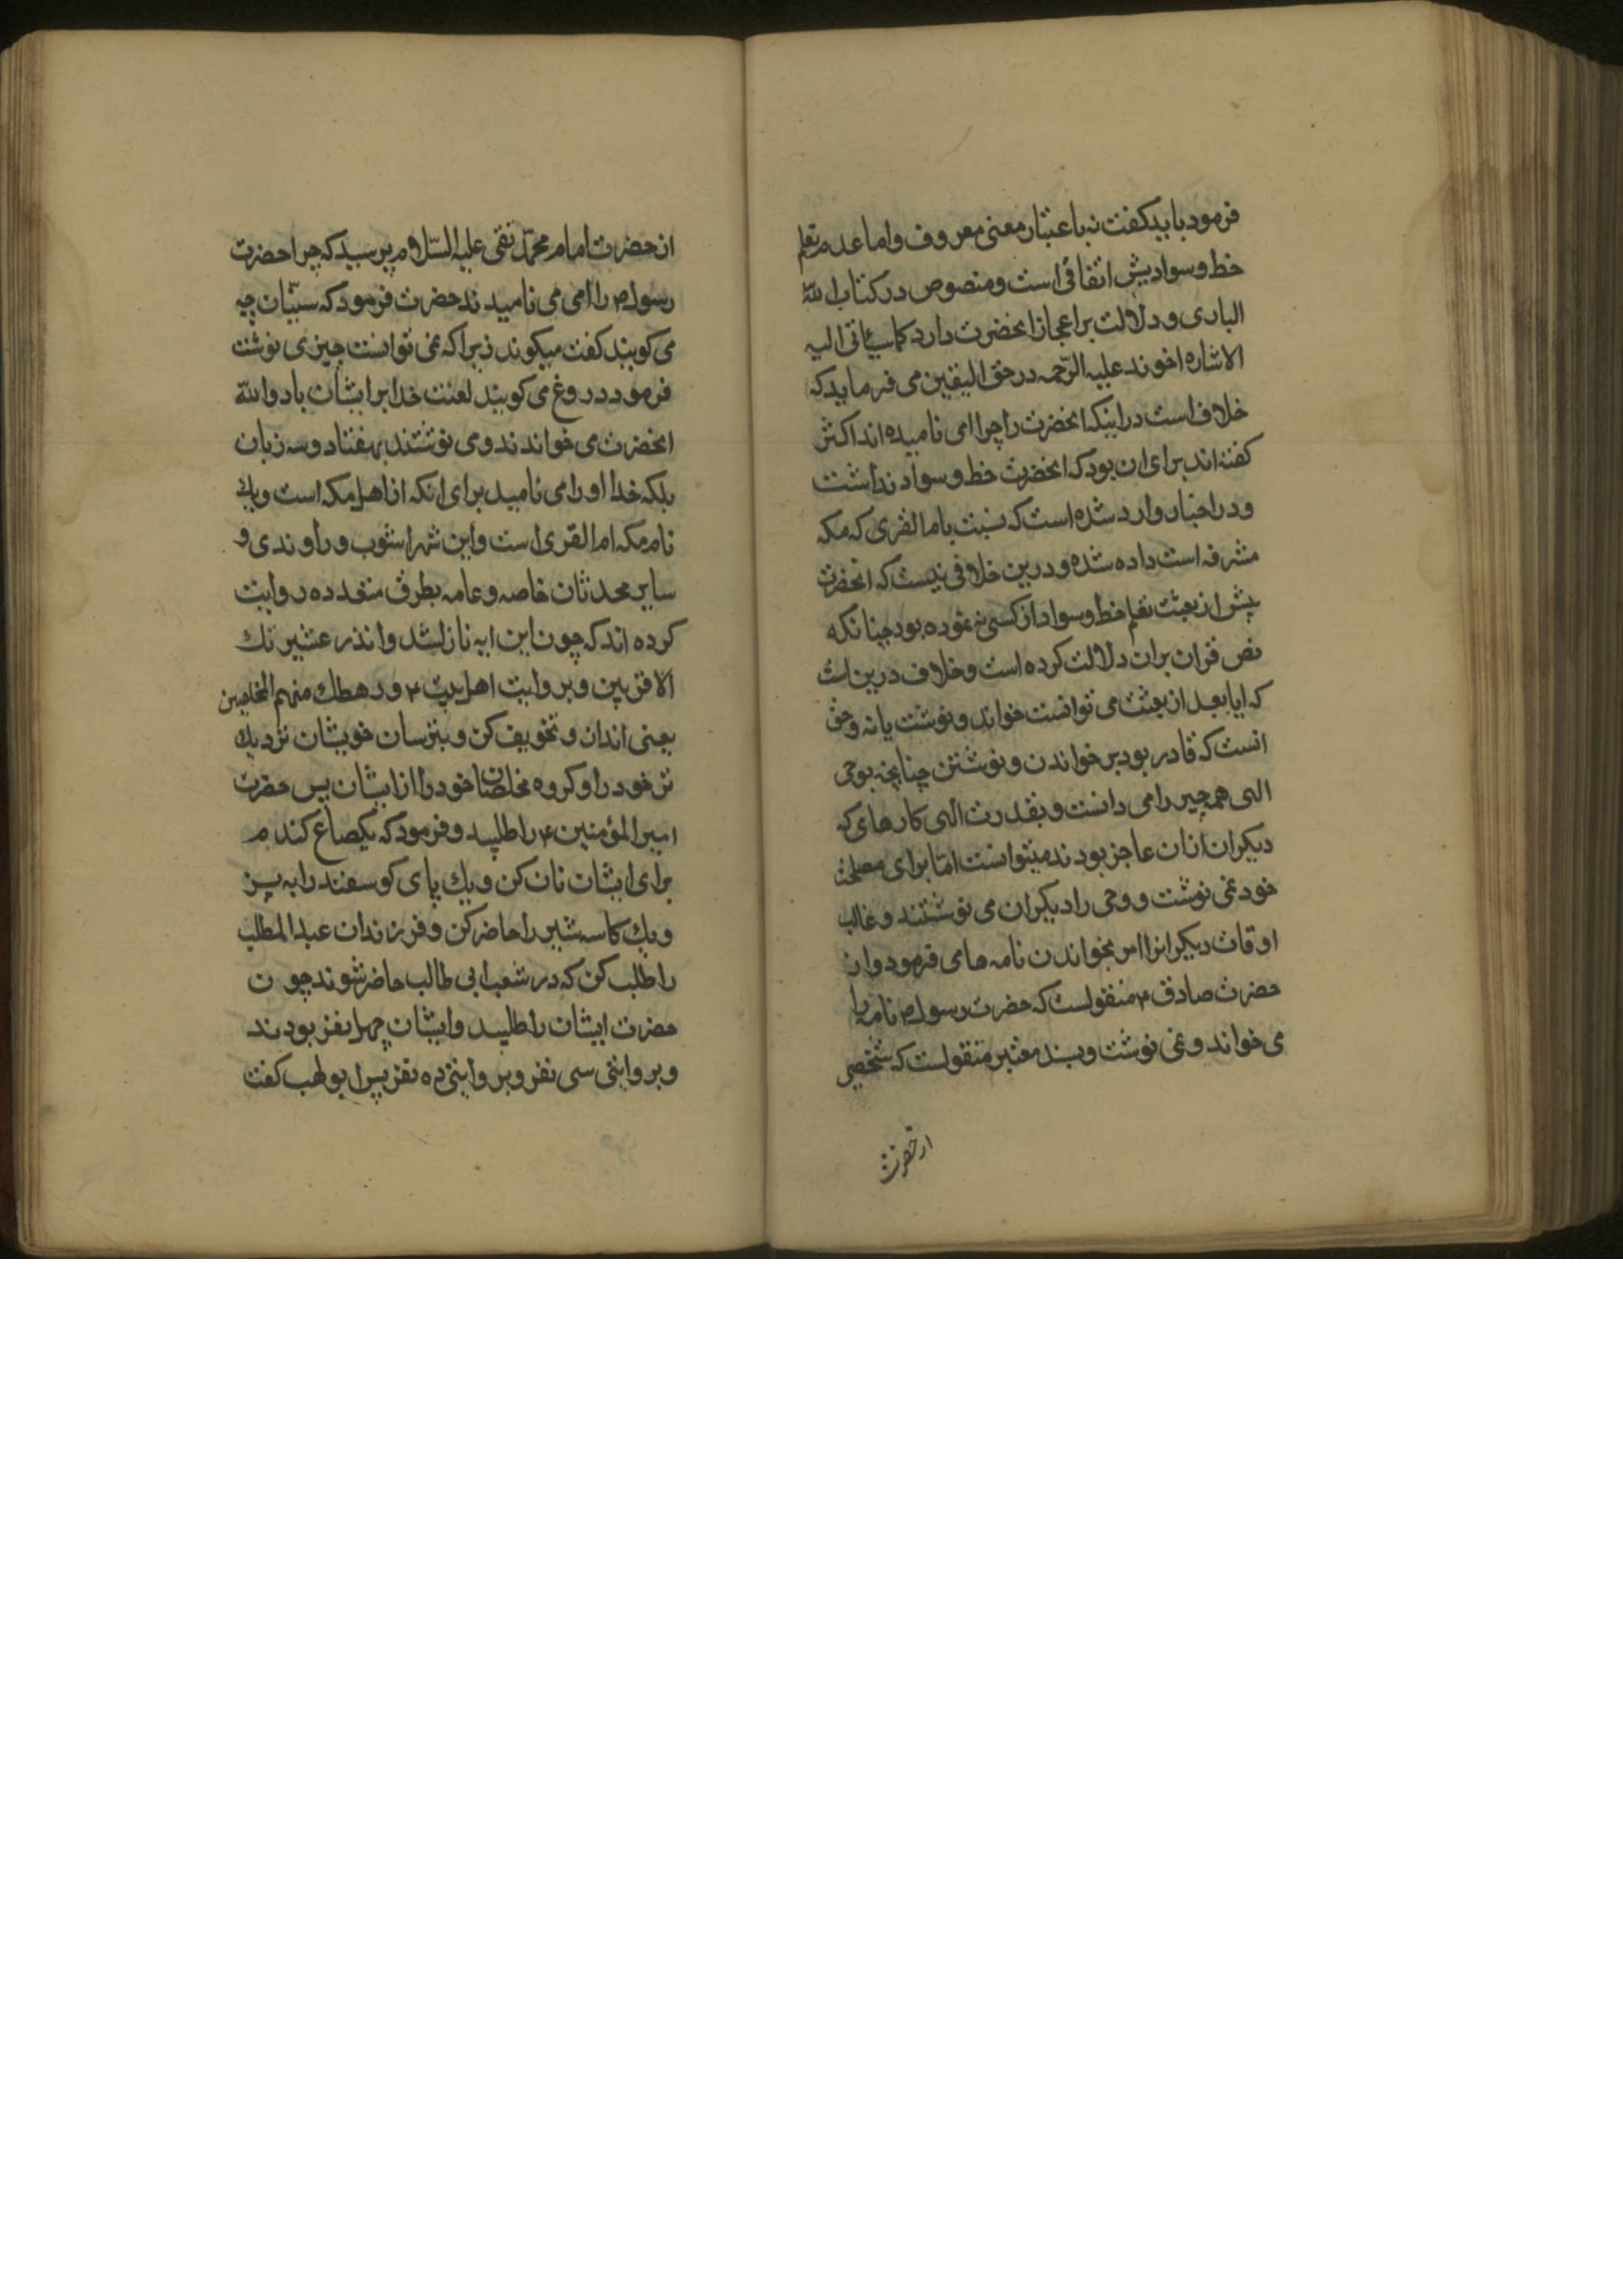 فرمود باید کفت نه باعتبار معنی معروف و اما عدم تعلم
خط و سوادیش اتفاقی است و منصوص در کتاب الله
الباری و دلالت بر اعجاز انحضرت دارد کما سیاتی الیه
الاشاره اخوند علیه الرّحمه در حق الیقین می فرماید که
خلاف است در اینکه انحضرت را چرا امی نامیده اند اکثر
کفته اند برای ان بود که انحضرت خط و سواد نداشت
و در اخبار وارد شده است که نسبت بام القری که مکه
مشرفه است داده شده و درین خلافی نیست که انحضرت
پیش از بعثت تعلم خط و سواد از کسی نه نموده بود چنانکه
نص قران بران دلالت کرده است و خلاف درین است
که ایا بعد از بعثت می توانست خواند و نوشت یا نه و حق
انست که قادر بود بر خواندن و نوشتن چنانچه بوحی
الهی همه چیز را می دانست و بقدرت الهی کارهای که
دیکران ازان عاجز بودند میتوانست امّا برای مصلحت
خود نمی نوشت و وحی را دیکران می نوشتند و غالب
اوقات دیکرانرا امر بخواندن نامه ها می فرمود و از
حضرت صادق ۴ منقولست که حضرت رسول ص نامه را
می خواند و نمی نوشت و بسند معتبر منقولست که شخصی
از حضرت
از حضرت امام محمّد تقی علیه السّلام پرسید که چرا حضرت
رسول ص را امی می نامیدند حضرت فرمود که سنّیان چه
می کویند کفت میکویند زیرا که نمی توانست چیزی نوشت
فرمود دروغ می کویند لعنت خدا بر ایشان باد والله
انحضرت می خواندند و می نوشتند بهفتاد و سه زبان
بلکه خدا او را امی نامید برای انکه از اهل مکه است و یک
نام مکه ام القری است و ابن شهر اشوب و راوندی و
سایر محدثان خاصه و عامه بطرق متعدده روایت
کرده اند که چون این ایه نازلشد و انذر عشیرتک
الاقربین و بروایت اهل بیت ۴ و رهطک منهم المخلصین
یعنی انذار و تخویف کن و بترسان خویشان نزدیک
تر خود را و کروه مخلصان خود را از ایشان پس حضرت
امیر المؤمنین ۴ را طلبید و فرمود که یکصاع کندم
برای ایشان نان کن و یک پای کوسفند را به پز
و یک کاسه شیر را حاضر کن و فرزندان عبد المطلب
را طلب کن که در شعب ابی طالب حاضر شوند چون
حضرت ایشان را طلبید و ایشان چهل نفر بودند
و بروایتی سی نفر و بروایتی ده نفر پس ابو لهب کفت